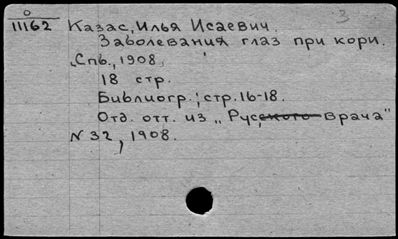 О
11162
3
Казас, Илья Исаевич.
Заболевания глаз при кори.
Спб., 1908.
18 стр.
Библиогр.; стр. 16-18.
Отд. отт. из „Русского Врача"
N 32, 1908.